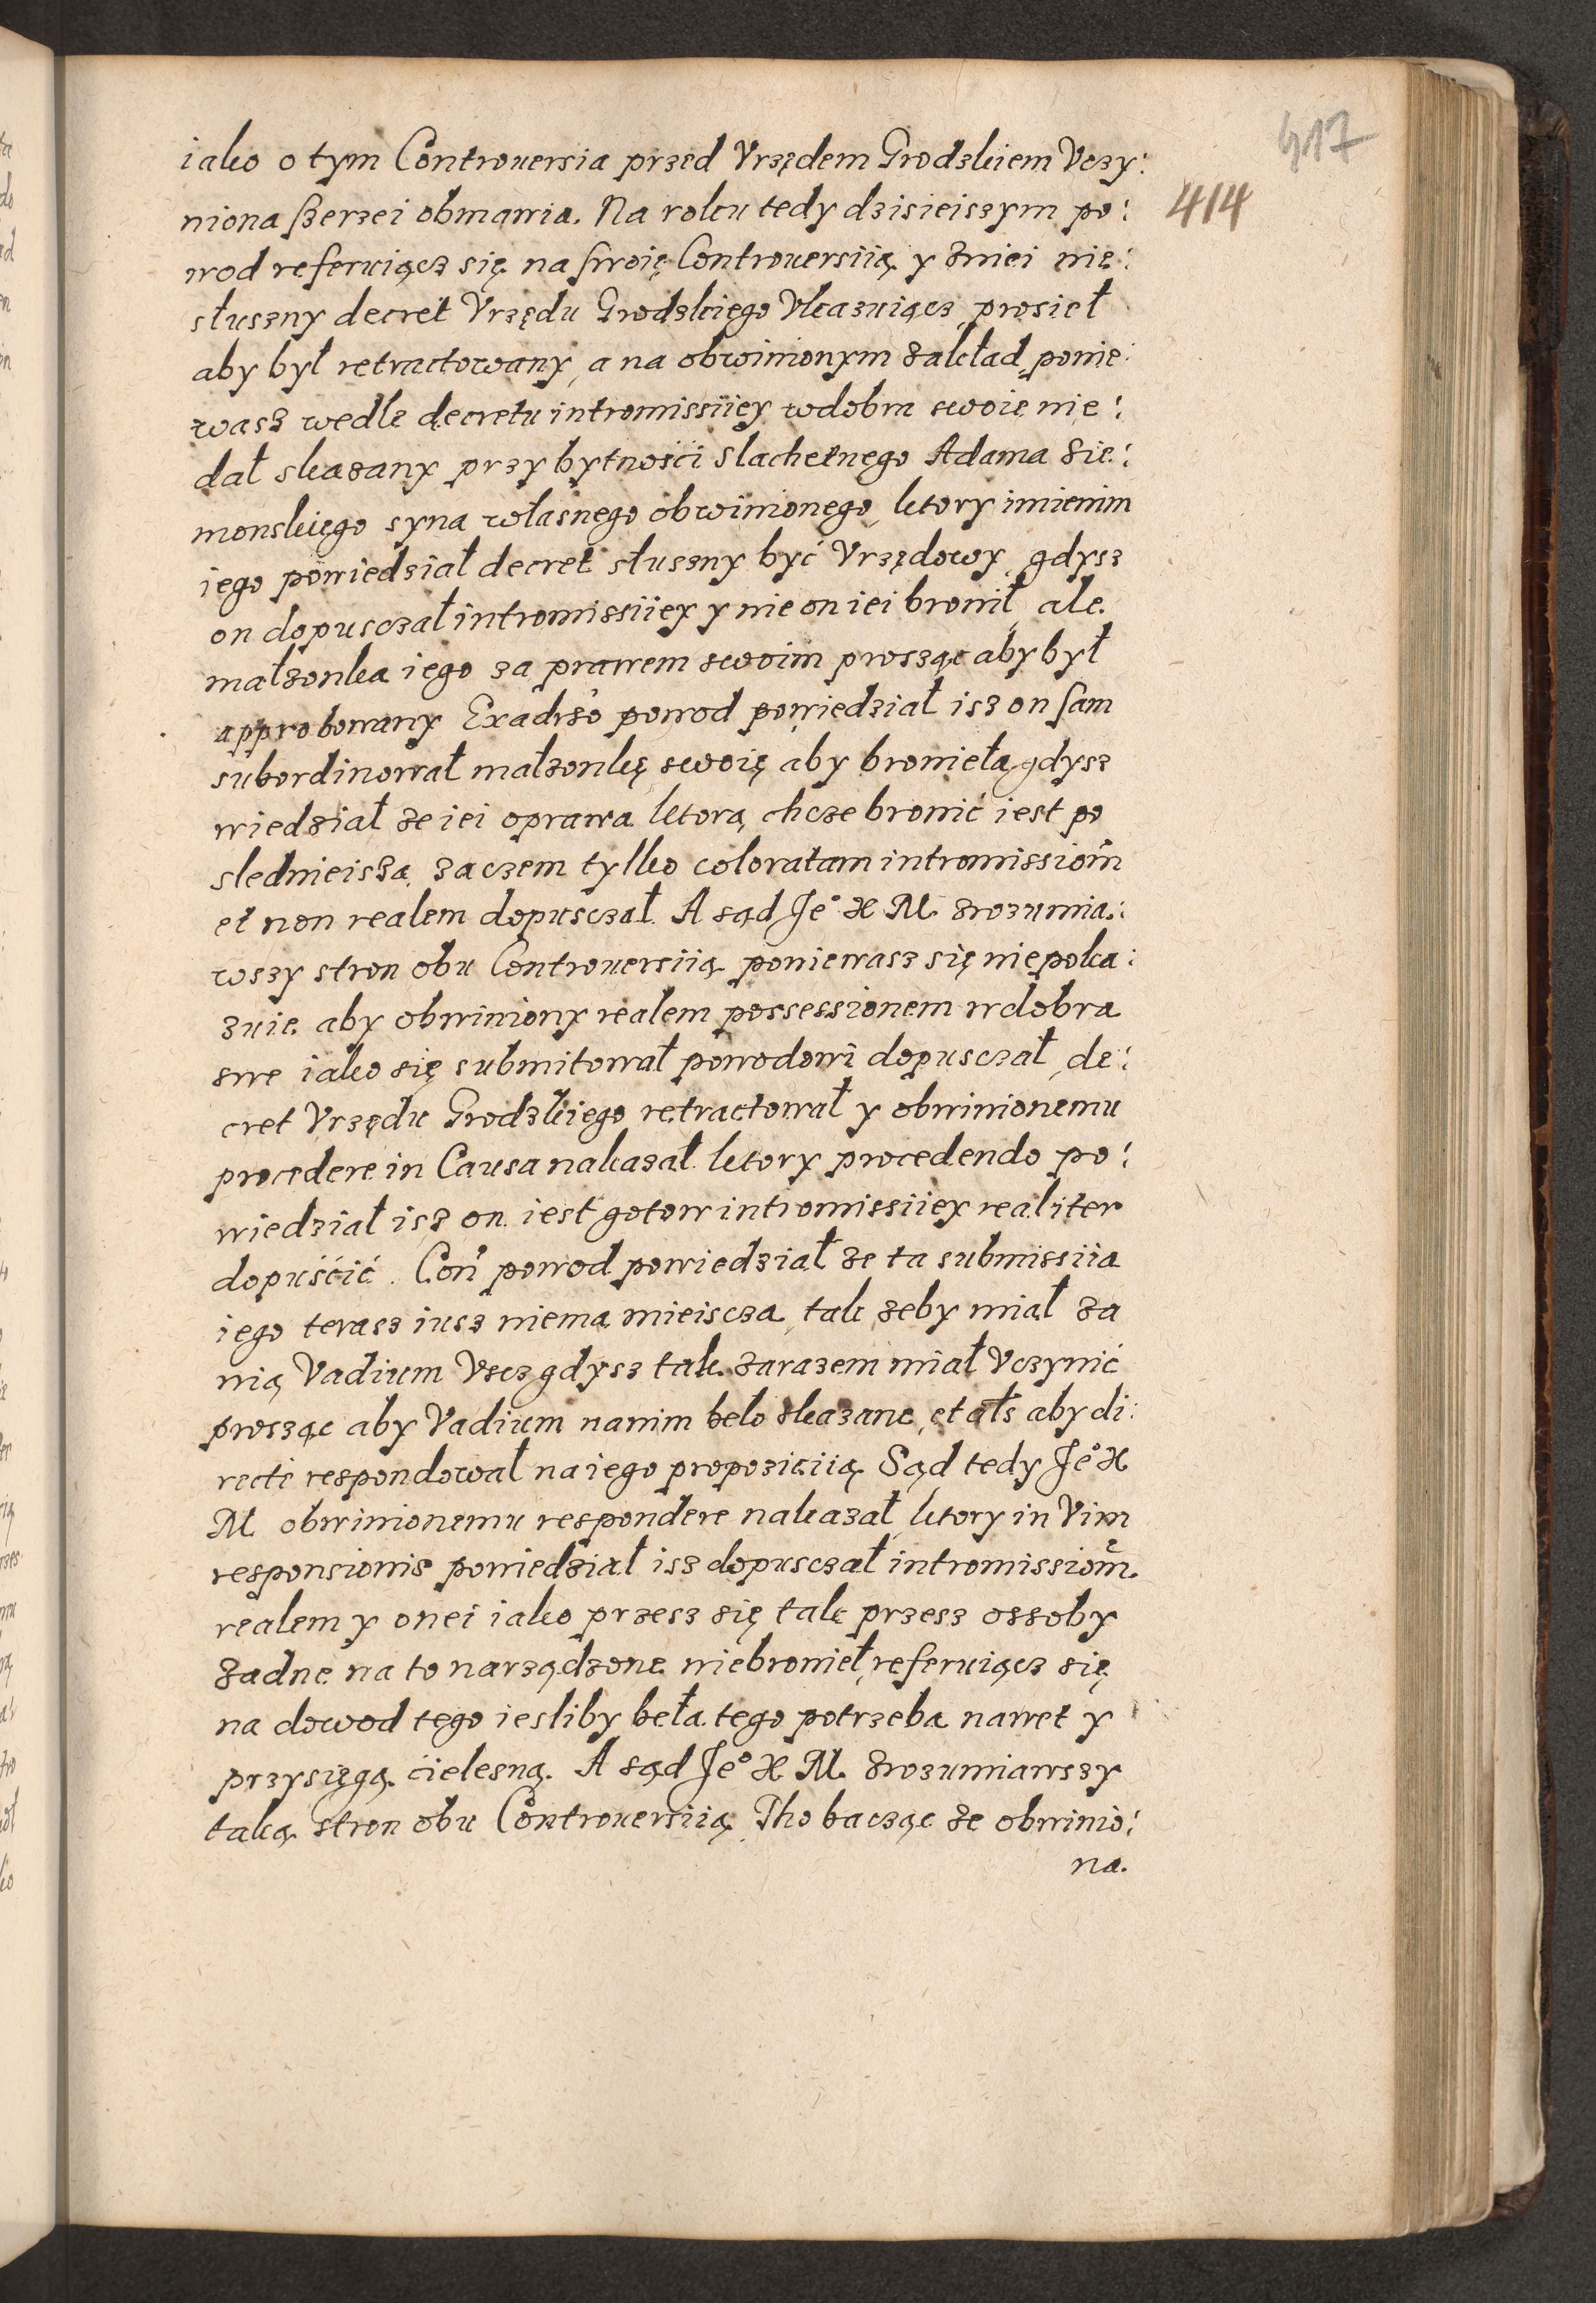 417
414
iako o tym Controuersia przed Vrzędem Grodzkiem Vczy:
niona szerzei obmawia. Na roku tedy dzisieiszym po:
wod referuiącz się na swoię Controuersiią y zniei nie:
słuszny decret Vrzędu Grodzkiego Vkazuiącz, prosieł
aby był retractowany, a na obwinionym zakład, ponie:
wasz wedle decretu intromissiiey wdobra swoie nie:
dał skazany przy bytności slachetnego Adama Zie:
monskiego syna własnego obwinionego, ktory imienim
iego powiedział decret słuszny być Vrzędowy, gdysz
on dopusczał intromissiiey y nie on iei bronił, ale
małzonka iego za prawem swoim prosząc aby był
approbowany Exadrso powod powiedział isz on sam
subordinował małzonkę swoię aby bronieła, gdysz
wiedział ze iei oprawa ktorą chcze bronić iest po
slednieisza, zaczem tylko coloratam intromission̄
et non realem dopusczał. A sąd Je° K M. zrozumia:
wszy stron obu Controuersiią poniewasz się niepoka:
zuie aby obwiniony realem possessionem wdobra
swe iako się submitował powodowi dopusczał, de:
cret Vrzędu Grodzkiego retractował y obwinionemu
procedere in Causa nakazał. ktory procedendo po:
wiedział isz on iest gotow intromissiiey realiter
dopuśćić. Con̄ powod powiedział ze ta submissiia
iego terasz iusz niema mieiscza, tak zeby miał za
nią Vadium Vscz gdysz tak zarazem miał Vczynić
prosząc aby Vadium nanim beło skazane, et ałs aby di:
recte respondował na iego propoziciią. Sąd tedy Je° K
M obwinionemu respondere nakazał, ktory in Vim
responsionis powiedział isz dopusczał intromission̄
realem y onei iako przesz się tak przesz ossoby
zadne na to narządzone niebronieł, referuiącz się
na dowod tego iesliby beła tego potrzeba nawet y
przysięgą cielesną. A sąd Je° K M. zrozumiawszy
taką stron obu Controuersiią, Tho bacząc ze obwinio:
na.